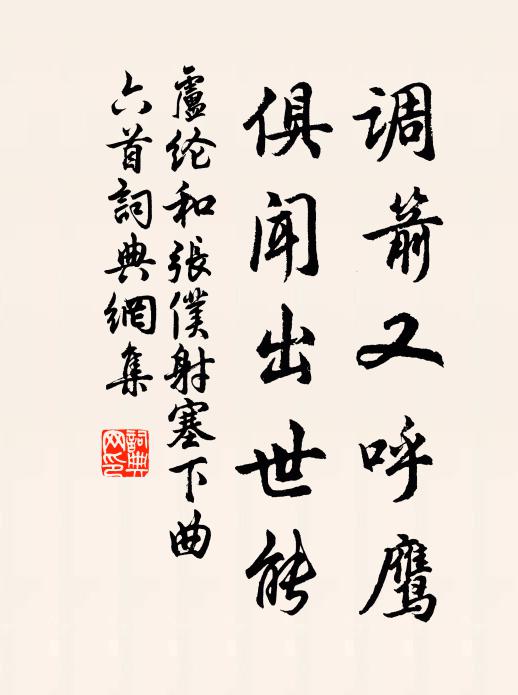 调箭又呼鷹
俱闻出世能
盧纶和張僕射塞下曲
六首詞典網集
詞典网印